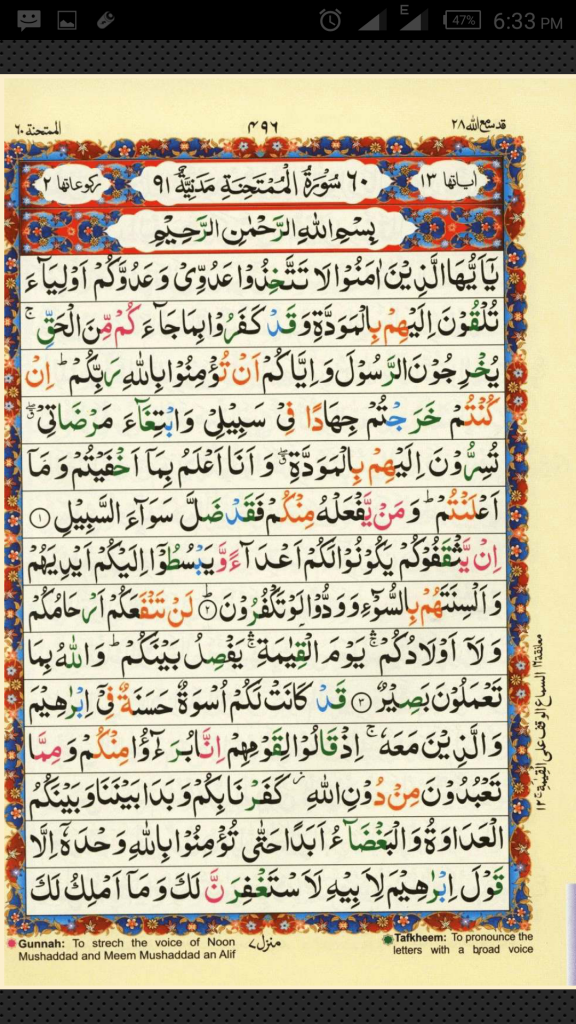 47% 6:33 PM
قد سمع الله ٢٨
۴۹۶
الممتحنة ٦٠
اٰیاتها ١٣
٦٠ سُوْرَةُ الْمُمْتَحِنَةِ مَدَنِیَّةٌ ٩١
رکوعاتها ٢
بِسْمِ اللّٰهِ الرَّحْمٰنِ الرَّحِیْمِ
یٰۤاَیُّهَا الَّذِیْنَ اٰمَنُوْا لَا تَتَّخِذُوْا عَدُوِّیْ وَعَدُوَّكُمْ اَوْلِیَآءَ
تُلْقُوْنَ اِلَیْهِمْ بِالْمَوَدَّةِ وَقَدْ كَفَرُوْا بِمَا جَآءَكُمْ مِّنَ الْحَقِّ ۚ
یُخْرِجُوْنَ الرَّسُوْلَ وَاِیَّاكُمْ اَنْ تُؤْمِنُوْا بِاللّٰهِ رَبِّكُمْ ؕ اِنْ
كُنْتُمْ خَرَجْتُمْ جِهَادًا فِیْ سَبِیْلِیْ وَابْتِغَآءَ مَرْضَاتِیْ ۖۗ
تُسِرُّوْنَ اِلَیْهِمْ بِالْمَوَدَّةِ ۖۗ وَاَنَا اَعْلَمُ بِمَاۤ اَخْفَیْتُمْ وَمَاۤ
اَعْلَنْتُمْ ؕ وَمَنْ یَّفْعَلْهُ مِنْكُمْ فَقَدْ ضَلَّ سَوَآءَ السَّبِیْلِ ﴿١﴾
اِنْ یَّثْقَفُوْكُمْ یَكُوْنُوْا لَكُمْ اَعْدَآءً وَّیَبْسُطُوْۤا اِلَیْكُمْ اَیْدِیَهُمْ
وَاَلْسِنَتَهُمْ بِالسُّوْٓءِ وَوَدُّوْا لَوْ تَكْفُرُوْنَ ؕ﴿٢﴾ لَنْ تَنْفَعَكُمْ اَرْحَامُكُمْ
وَلَاۤ اَوْلَادُكُمْ ۛۚ یَوْمَ الْقِیٰمَةِ ۛۚ یَفْصِلُ بَیْنَكُمْ ؕ وَاللّٰهُ بِمَا
تَعْمَلُوْنَ بَصِیْرٌ ﴿٣﴾ قَدْ كَانَتْ لَكُمْ اُسْوَةٌ حَسَنَةٌ فِیْۤ اِبْرٰهِیْمَ
وَالَّذِیْنَ مَعَهٗ ۚ اِذْ قَالُوْا لِقَوْمِهِمْ اِنَّا بُرَءٰٓؤُا مِنْكُمْ وَمِمَّا
تَعْبُدُوْنَ مِنْ دُوْنِ اللّٰهِ ؗ كَفَرْنَا بِكُمْ وَبَدَا بَیْنَنَا وَبَیْنَكُمُ
الْعَدَاوَةُ وَالْبَغْضَآءُ اَبَدًا حَتّٰی تُؤْمِنُوْا بِاللّٰهِ وَحْدَهٗۤ اِلَّا
قَوْلَ اِبْرٰهِیْمَ لِاَبِیْهِ لَاَسْتَغْفِرَنَّ لَكَ وَمَاۤ اَمْلِكُ لَكَ
منزل ٧
Gunnah: To strech the voice of Noon
Mushaddad and Meem Mushaddad an Alif
Tafkheem: To pronounce the
letters with a broad voice